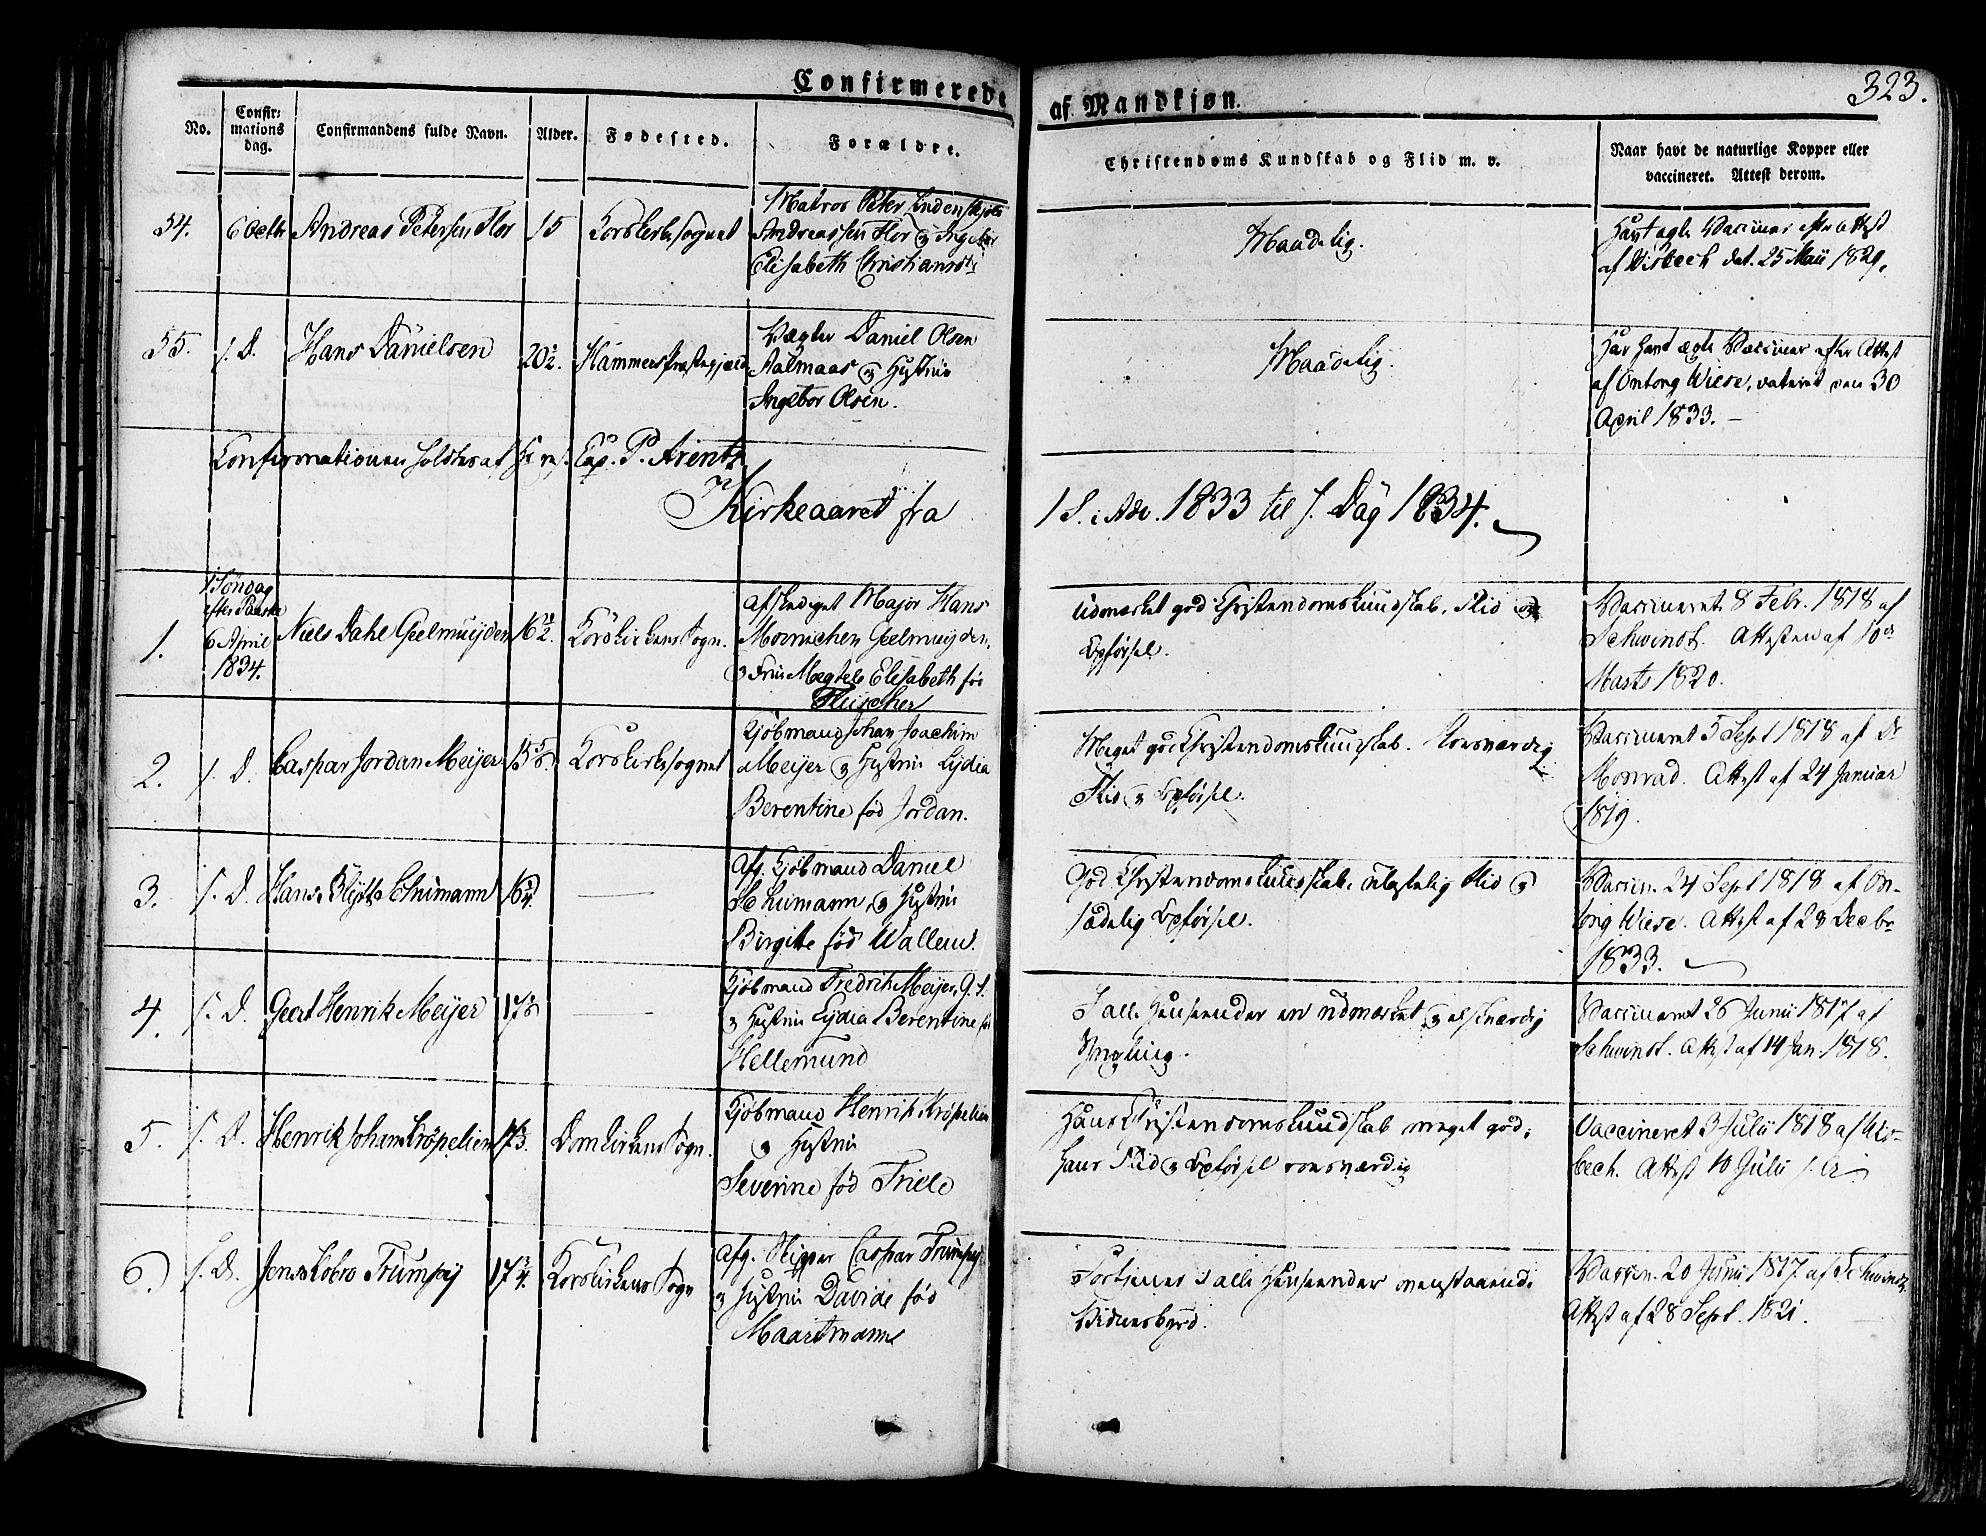 Confirmerede af Mandkjøn.
323.
No.
Confirmations dag.
Confirmandens fulde Navn.
Alder.
Fødested.
Forældre.
Christendoms Kundskab og Flid m. v.
Naar havt de naturlige Kopper eller
vaccineret. Attest derom.
54.
6 Octb
Andreas Petersen Flor
15
Korskirkesognet
Matros Peter
Andreassen Flor og Ingebor
Elisabeth Christiansdt
Maadelig.
Havt ægte Vacciner efter Attest
af Visbech dat. 25 Maii 1829.
55.
s. D.
Hans Danielsen
20½.
Hammers Præstegjæld
Vægter Daniel Olsen
Aalmaas og Hustrue
Ingebor Olsen.
Maadelig.
Har havt ægte Vacciner efter Attest
af Ontong Wiese, dateret den 30
April 1833. –
Confirmationen holdtes af Hr res. Cap. P. Arentz
Kirkeaaret fra 1 S. i Adv. 1833 til s. Dag 1834.
1.
1 Søndag
efter Paaske
6 April
1834.
Niels Dahl Geelmuijden
16½.
Korskirkens Sogn.
Afskediget Major Hans
Mornichen Geelmuijden,
og Frue Megtele Elisabeth fød
Fleischer
Udmærket god Christendomskundskab, Flid og
Opførsel.
Vaccineret 8 Febr. 1818 af
Schwindt. Attesten af 10de
Marts 1820.
2.
s. D.
Caspar Jordan Meijer
15
Korskirkesognet
Kjøbmand Johan Joachim
Meijer og Hustrue Lydia
Berentine fød Jordan.
Meget god Christendomskundskab. Roesværdig
Flid og Opførsel.
Vaccineret 5 Sept 1818 af Dr
Monrad. Attest af 24 Januar
1819.
3.
s. D.
Hans Blytt Schumann
16¼
Afg. Kjøbmand Daniel
Schumann, og Hustrue
Birgitte fød Wallem.
God Christendomskundskab, ulastelig Flid og
sædelig Opførsel.
Vaccin. 24 Sept 1818 af On-
tong Wiese. Attest af 28 Decbr
1833.
4.
s. D.
Geert Henrik Meijer
17
Kjøbmand Fredrik Meijer, G. S.
og Hustrue Lydia Berentine fød
Hellemund
I alle Henseender en udmærket og elskværdig
Yngling.
Vaccineret 26 Junii 1817 af
Schwindt. Attest af 14 Jan. 1818.
5.
s. D.
Henrik Johan Krøpelien
17
Domkirkens Sogn.
Kjøbmand Henrik Krøpelien
og Hustrue
Severine fød Friele
Hans Christendomskundskab meget god;
hans Flid og Opførsel roesværdig
Vaccineret 3 Julii 1818 af Vis-
bech. Attest 10 Julii
6.
s. D.
Jens Lobro Trumpij
17¾
Korskirkens Sogn
Afg. Skipper Caspar Trumpij
og Hustrue Davide fød
Maartmann
Fortjener i alle Henseender ovenstaaende
Vidnesbyrd.
Vaccin. 20 Junii 1817 af Schwindt.
Attest af 28 Sept. 1821.